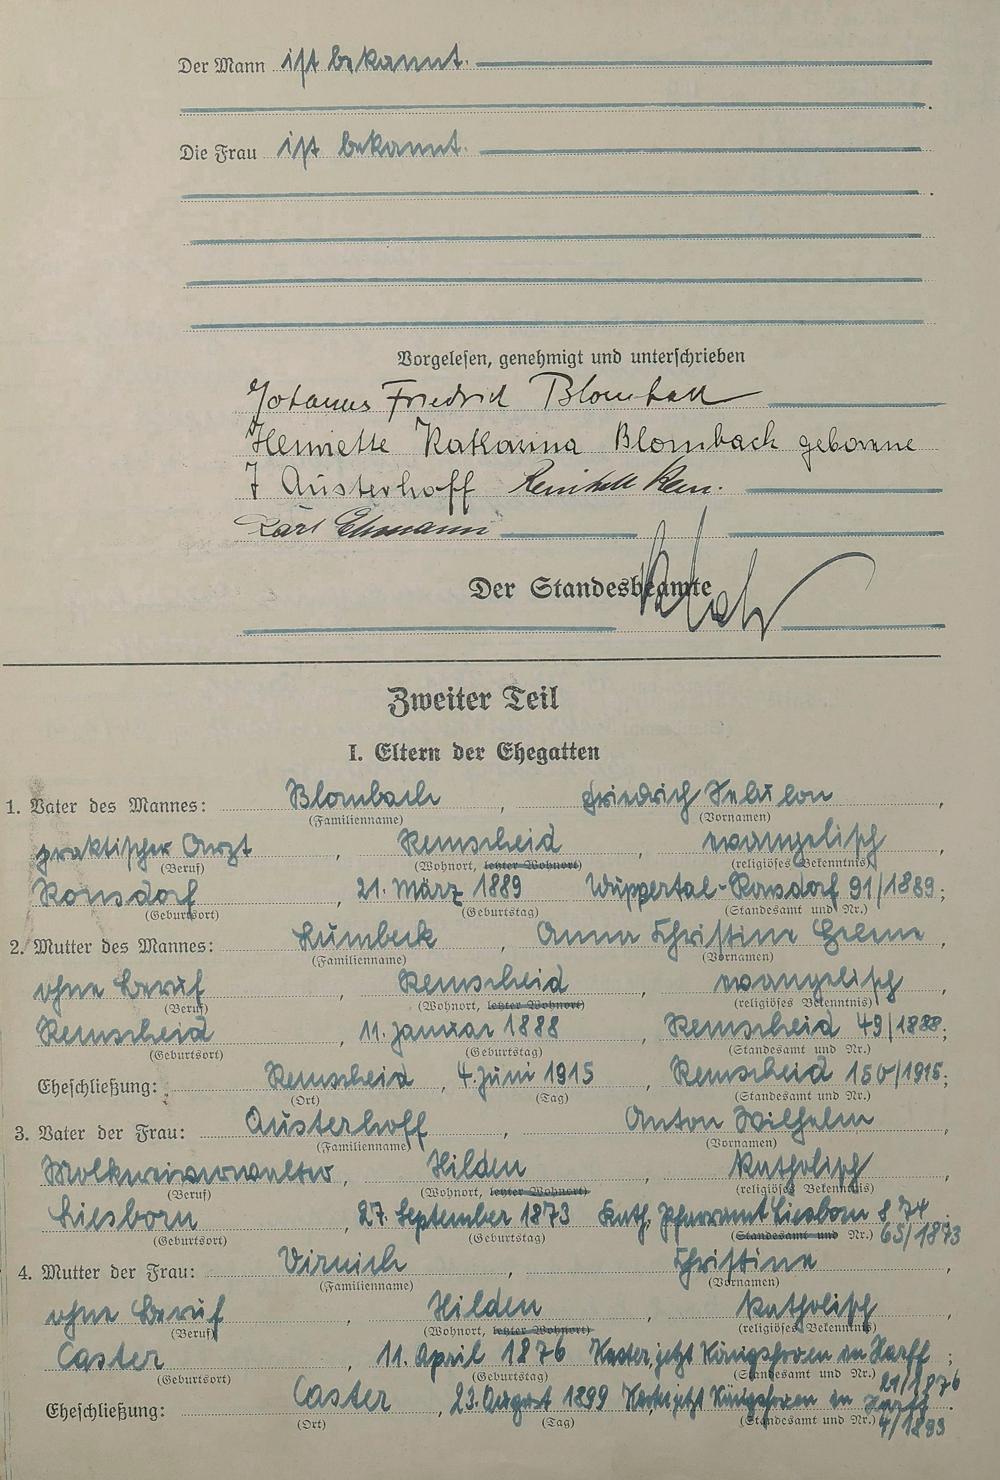 Der Mann ist bekannt.
Die Frau ist bekannt.
Vorgelesen, genehmigt und unterschrieben
Johannes Friedrich Blombach
Henriette Katharina Blombach geborene
Austerhoff
Karl Ehmann
Der Standesbeamte
Zweiter Teil
I. Eltern der Ehegatten
1. Vater des Mannes: Blombach, Friedrich Sebulon,
(Familienname) (Vornamen)
praktischer Arzt, Remscheid, evangelisch
(Beruf) (Wohnort, letzter Wohnort) (religiöses Bekenntnis)
Ronsdorf, 21. März 1889 Wuppertal-Ronsdorf 91/1889;
(Geburtsort) (Geburtstag) (Standesamt und Nr.)
2. Mutter des Mannes: Lumbeck, Anna Christine Helene,
(Familienname) (Vornamen)
ohne Beruf, Remscheid, evangelisch,
(Beruf) (Wohnort, letzter Wohnort) (religiöses Bekenntnis)
Remscheid, 11. Januar 1888, Remscheid 49/1888;
(Geburtsort) (Geburtstag) (Standesamt und Nr.)
Eheschließung: Remscheid, 4. Juni 1915, Remscheid 150/1915;
(Ort) (Tag) (Standesamt und Nr.)
3. Vater der Frau: Austerhoff, Anton Wilhelm,
(Familienname) (Vornamen)
Molkereiverwalter, Hilden, katholisch
(Beruf) (Wohnort, letzter Wohnort) (religiöses Bekenntnis)
Liesborn, 27. September 1873 Kath. Pfarramt Liesborn S 74
(Geburtsort) (Geburtstag) (Standesamt und Nr.) 65/1873
4. Mutter der Frau: Virnich, Christine,
(Familienname) (Vornamen)
ohne Beruf, Hilden, katholisch,
(Beruf) (Wohnort, letzter Wohnort) (religiöses Bekenntnis)
Caster, 11. April 1876 jetzt Königshoven in Harff;
(Geburtsort) (Geburtstag) (Standesamt und Nr.) 21/1876
Eheschließung: Caster, 23. August 1899 jetzt Königshoven in Harff
(Ort) (Tag) (Standesamt und Nr.)